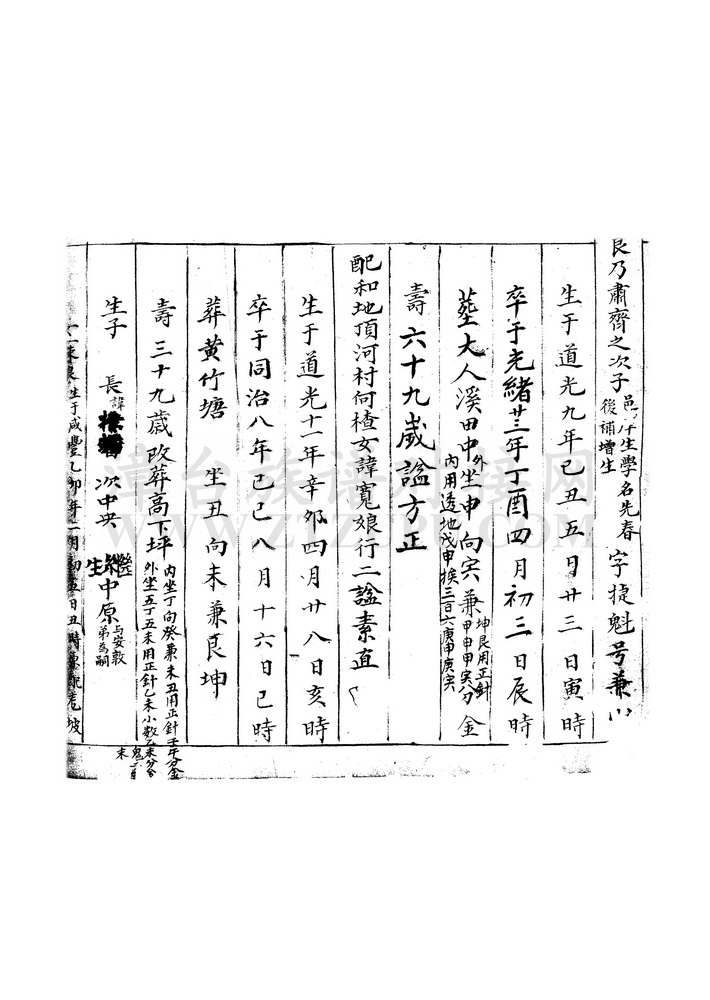 良乃肅齊之次子 邑庠生學名先春 後補增生 字捷魁号兼山
生于道光九年己丑五月廿三日寅時
卒于光緒廿三年丁酉四月初三日辰時
塟大人溪田中 外坐申向寅兼坤艮用正針 甲申甲寅分金
內用透地戊申挨三百六庚申庚寅
壽六十九歲諡方正
配和地頂河村何楂女諱寬娘行二諡素直
生于道光十一年辛卯四月廿八日亥時
卒于同治八年己巳八月十六日巳時
葬黃竹塘 坐丑向未兼艮坤
壽三十九歲改葬高下坪 內坐丁向癸兼未丑用正針壬午分金
外坐五丁五未用正針乙未小數乙未分金
鬼
末
生子 長諱 次中央 繼生中原 与安敦弟為嗣
生于咸豐乙卯年二月初五日丑時
漳台族谱对接网